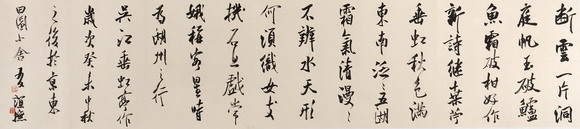 断雲一片洞
庭帆玉破鱸
魚霜破柑好作
新詩継桑苧
垂虹秋色滿
東南泛〻五湖
霜氣清漫〻
不辨水天形
何須織女支
機石且戲常
娥稱客星時
為湖州之行
吳江垂虹亭作
歲次癸未中秋
之後於京東
田園小舍